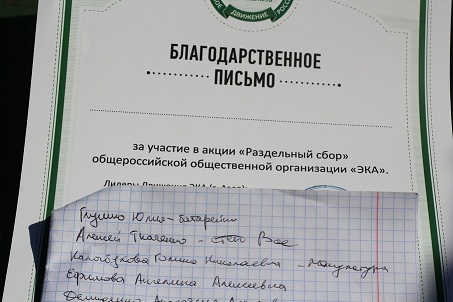 ДВИЖЕНИЕ
БЛАГОДАРСТВЕННОЕ
ПИСЬМО
за участие в акции «Раздельный сбор»
общероссийской общественной организации «ЭКА».
Глушко Юлия - батарейки
Алексей Ткаченко -
Галина Николаевна - макулатура
Ефимова Ангелина Алексеевна